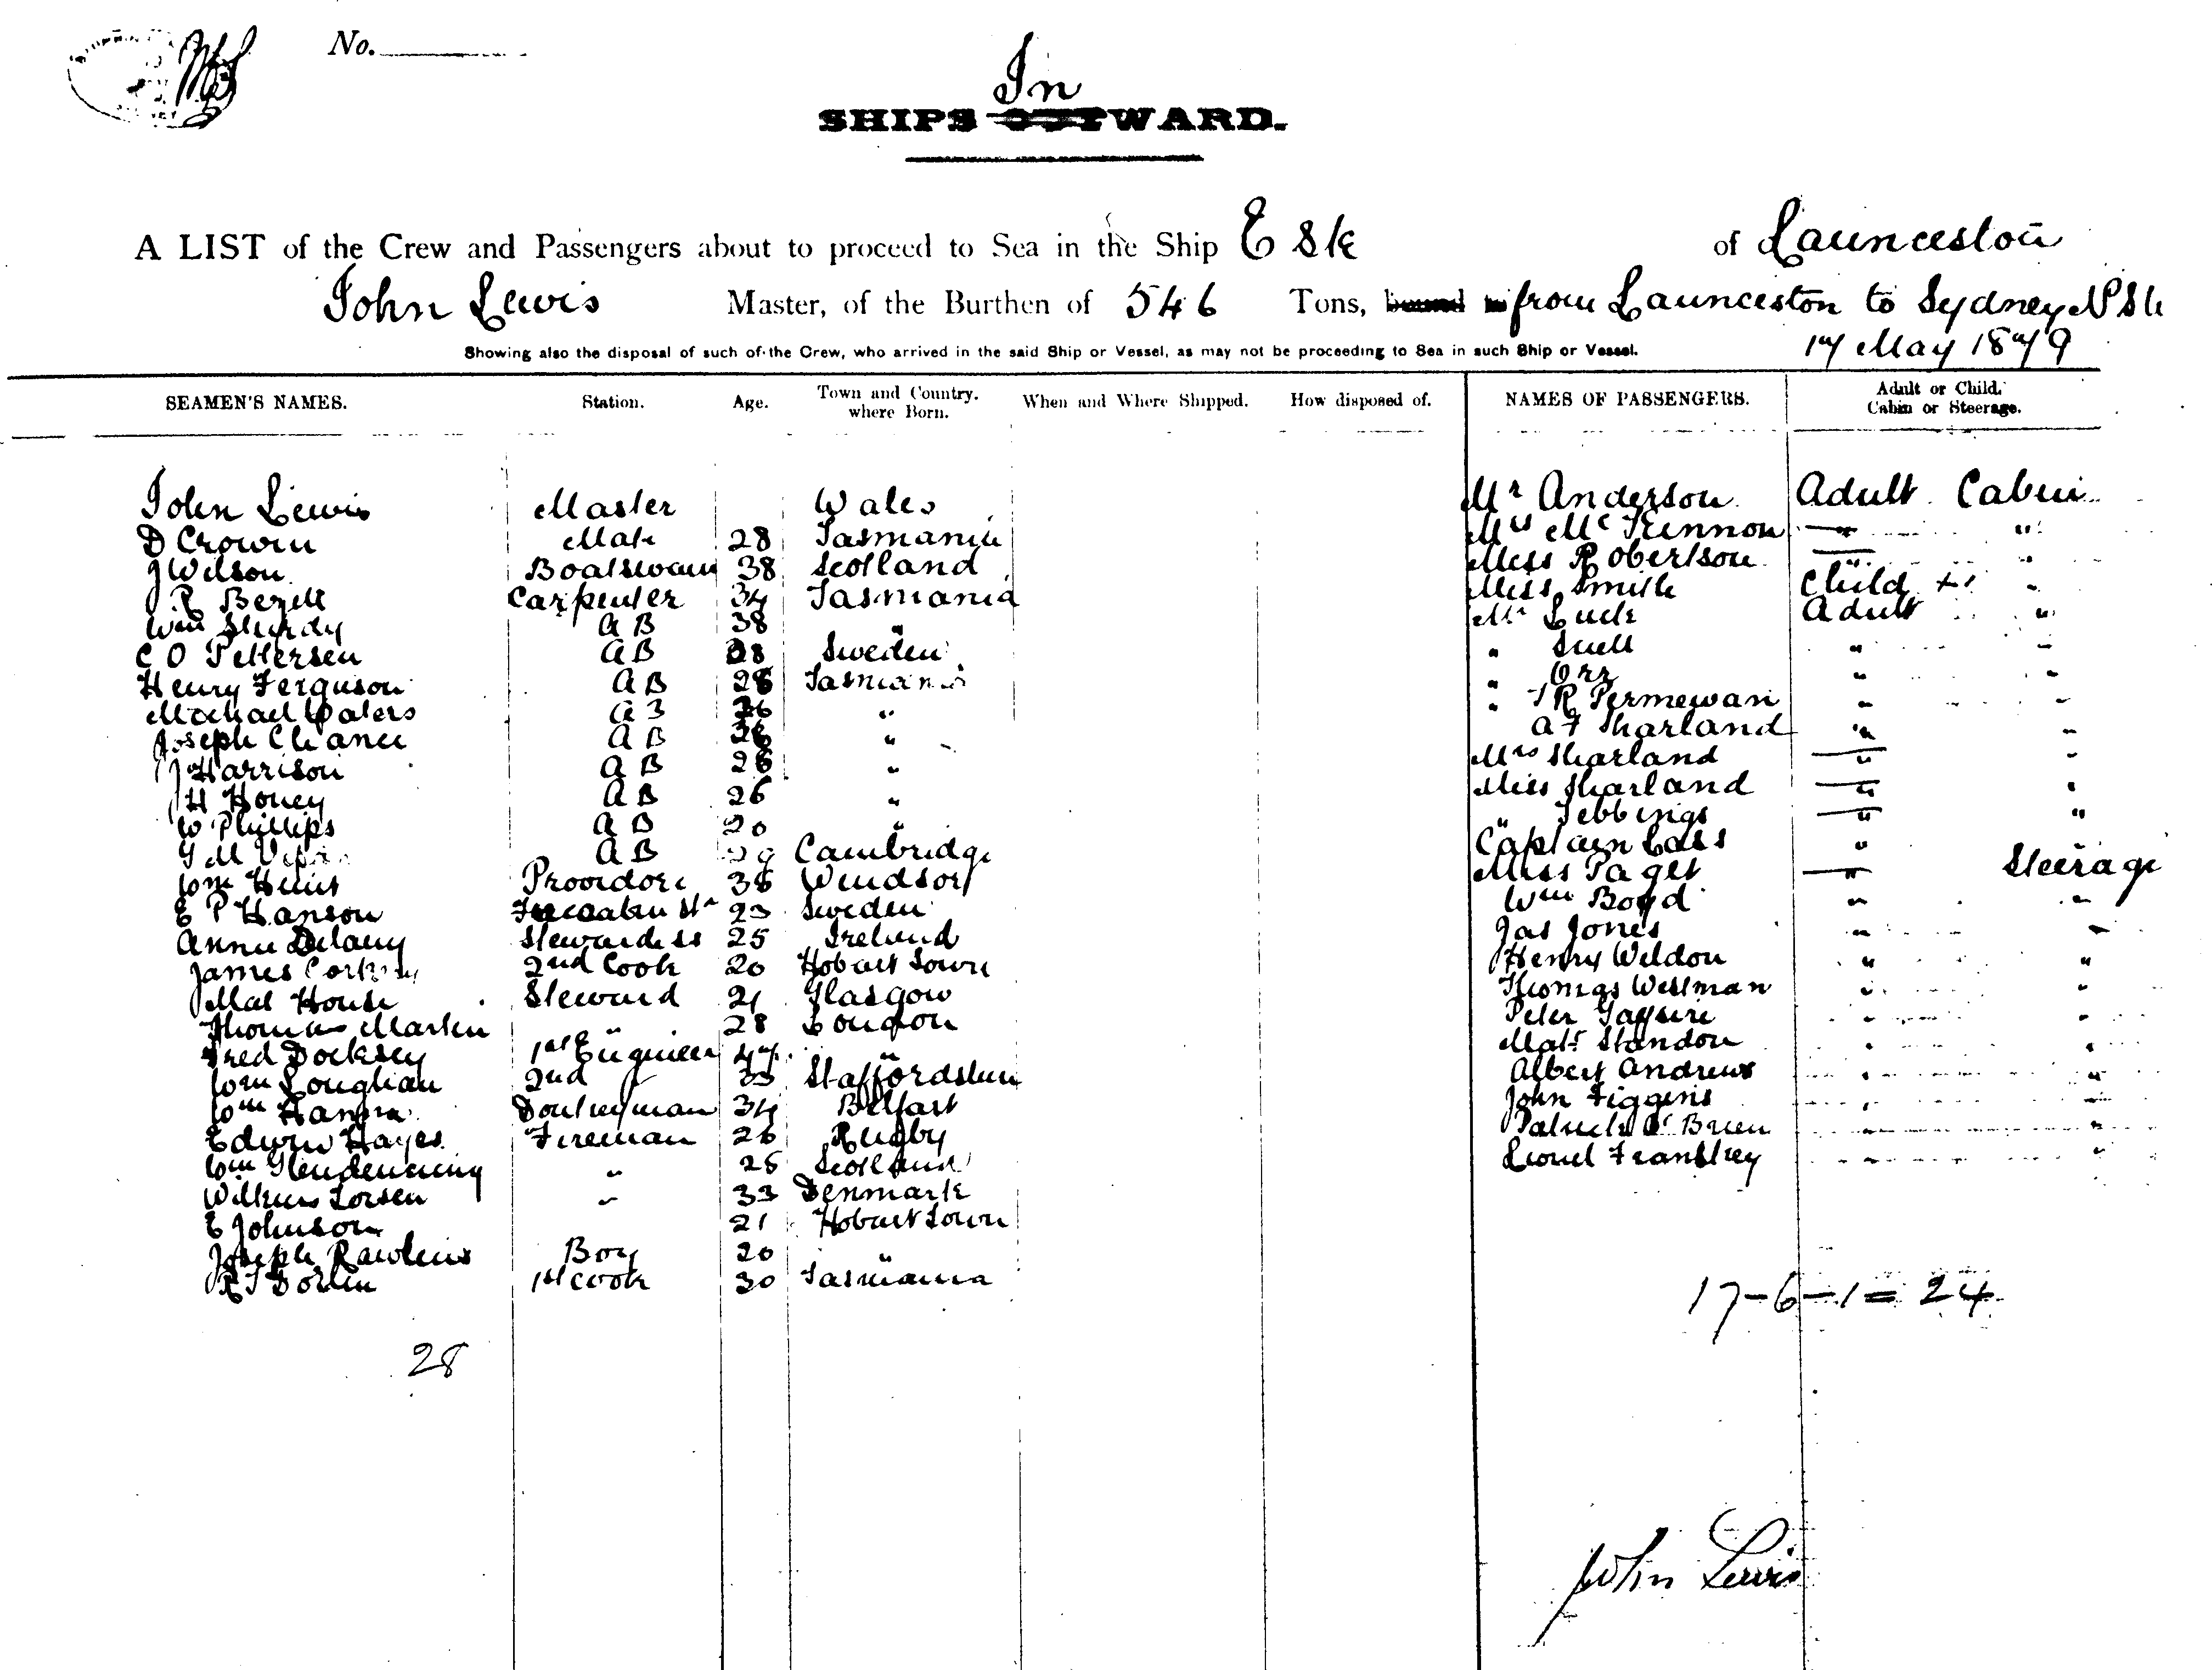 No.
In
SHIPS OUTWARD.
A LIST of the Crew and Passengers about to proceed to Sea in the Ship Esk of Launceston
John Lewis Master, of the Burthen of 546 Tons, bound to from Launceston to Sydney NSW
17 May 1879
Showing also the disposal of such of the Crew, who arrived in the said Ship or Vessel, as may not be proceeding to Sea in such Ship or Vessel.
SEAMEN'S NAMES. Station. Age. Town and Country. where Born. When and Where Shipped. How disposed of. NAMES OF PASSENGERS. Adult or Child. Cabin or Steerage.
John Lewis Master Wales Mr Anderson Adult Cabin
D Crowin Mate 28 Tasmania Mrs McKinnon " "
J Wilson Boatswain 38 Scotland Miss Robertson " "
R Bezett Carpenter 34 Tasmania Miss Smith Child "
Wm Sturdy AB 38 " Mr Luck Adult "
C O Pettersen AB 28 Sweden " Snell " "
Henry Ferguson AB 28 Tasmania " Orr " "
Michael Waters AB 26 " " J R Permewan " "
Joseph Chance AB 26 " A F Sharland " "
J Harrison AB 26 " Mrs Sharland " "
H Honey AB 26 " Miss Sharland " "
W Phillips AB 20 " " Tebbings " "
AB Cambridge Captain Cass "
Wm Hunt Providore 36 Windsor Miss Paget " Steerage
E P Hanson Forecabin St 23 Sweden Wm Boyd " "
Annie Delany Stewardess 25 Ireland Jas Jones " "
James 2nd Cook 20 Hobart Town Henry Weldon " "
Mat House Steward 21 Glasgow Thomas Wellman " "
Thomas Martin " 28 London Peter " "
Fred Docksey 1st Engineer 47 " Matt Standon " "
Wm Loughan 2nd " 33 Staffordshire Albert Andrews " "
Wm Hanna Donkeyman 34 Belfast John Figgins " "
Edwin Hayes Fireman 26 Rugby Patrick O'Brien " "
Wm Glendenning " 25 Scotland Lionel "
Wilkins Lorsen " 33 Denmark
E Johnson 21 Hobart Town
Joseph Rawlins Boy 20 "
R J Dorlin 1st Cook 30 Tasmania
17-6-1=24
28
John Lewis